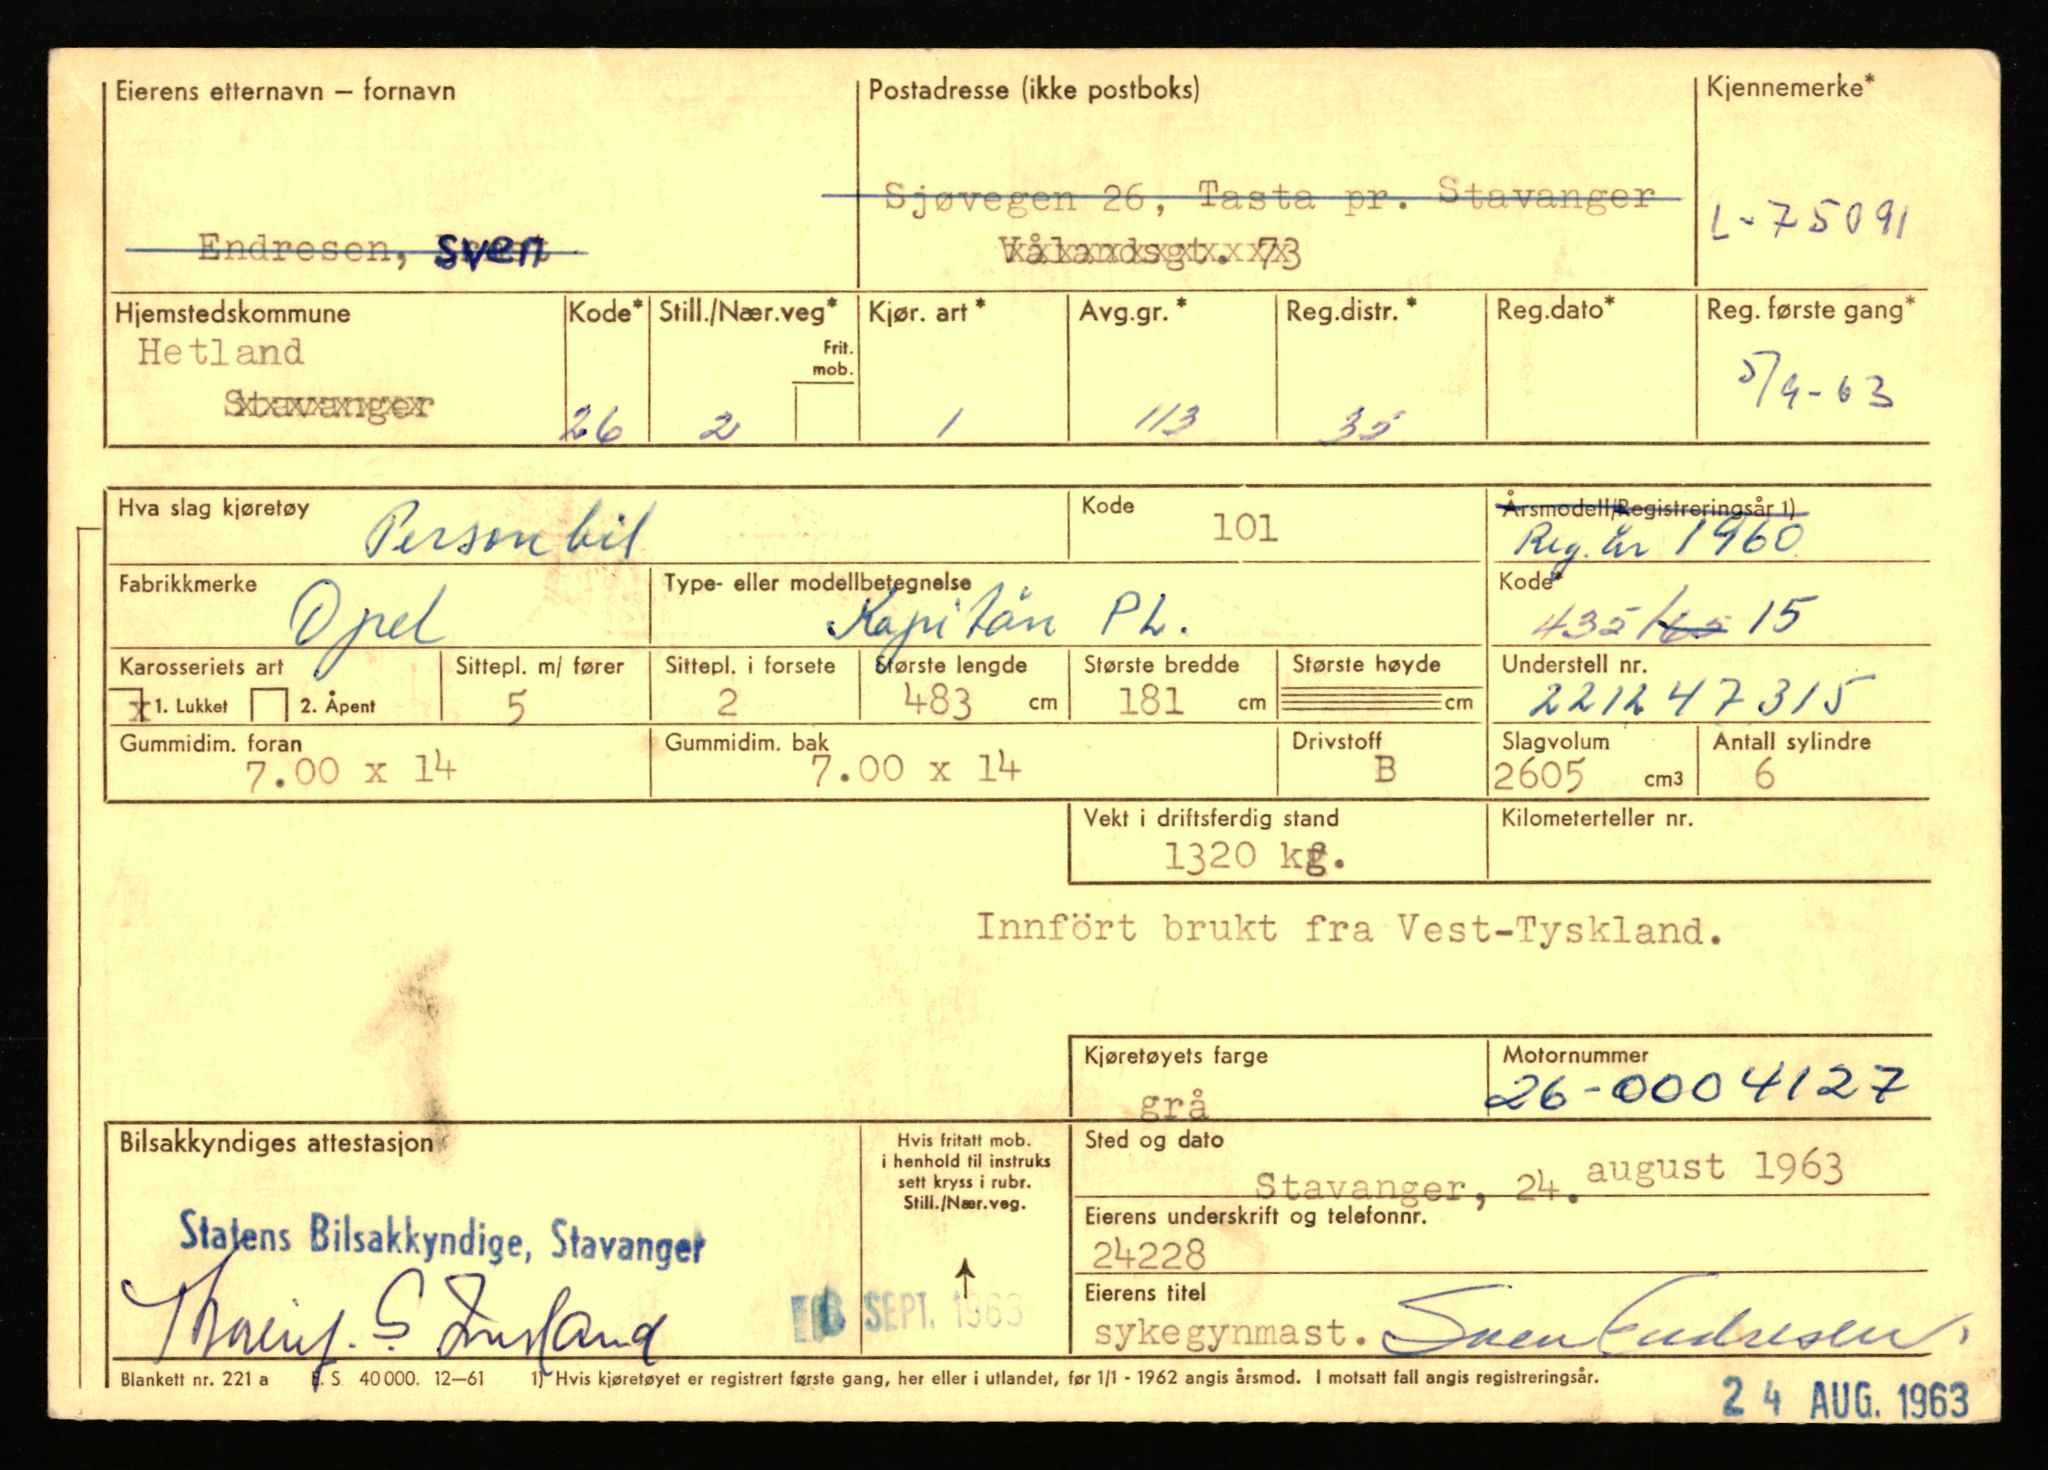 Eierens etternavn – fornavn
Postadresse (ikke postboks)
Kjennemerke*
Sjøvegen 26, Tasta pr. Stavanger
L-75091
Endresen, sven
Vålandsgt. 73
Hjemstedskommune
Kode*
Still./Nær.veg*
Frit.
mob.
Kjør. art*
Avg.gr.*
Reg.distr.*
Reg.dato*
Reg. første gang*
Hetland
Stavanger
26
2
1
113
35
5/9-63
Hva slag kjøretøy
Personbil
Kode
101
Årsmodell/Registreringsår 1)
Reg. år 1960
Fabrikkmerke
Opel
Type- eller modellbetegnelse
Kapitän PL.
Kode*
435/ 15
Karosseriets art
x 1. Lukket
2. Åpent
Sittepl. m/ fører
5
Sittepl. i forsete
2
Største lengde
483 cm
Største bredde
181 cm
Største høyde
cm
Understell nr.
221247315
Gummidim. foran
7.00 x 14
Gummidim. bak
7.00 x 14
Drivstoff
B
Slagvolum
2605 cm3
Antall sylindre
6
Vekt i driftsferdig stand
1320 kg.
Kilometerteller nr.
Innfört brukt fra Vest-Tyskland.
Kjøretøyets farge
grå
Motornummer
26-0004127
Bilsakkyndiges attestasjon
Hvis fritatt mob.
i henhold til instruks
sett kryss i rubr.
Still./Nær.veg.
Sted og dato
Stavanger, 24. august 1963
Statens Bilsakkyndige, Stavanger
Eierens underskrift og telefonnr.
24228
SEPT. 1963
Eierens titel
sykegynmast. Sven Endresen.
Blankett nr. 221 a E. S 40 000. 12–61 1) Hvis kjøretøyet er registrert første gang, her eller i utlandet, før 1/1 - 1962 angis årsmod. I motsatt fall angis registreringsår.
24 AUG. 1963